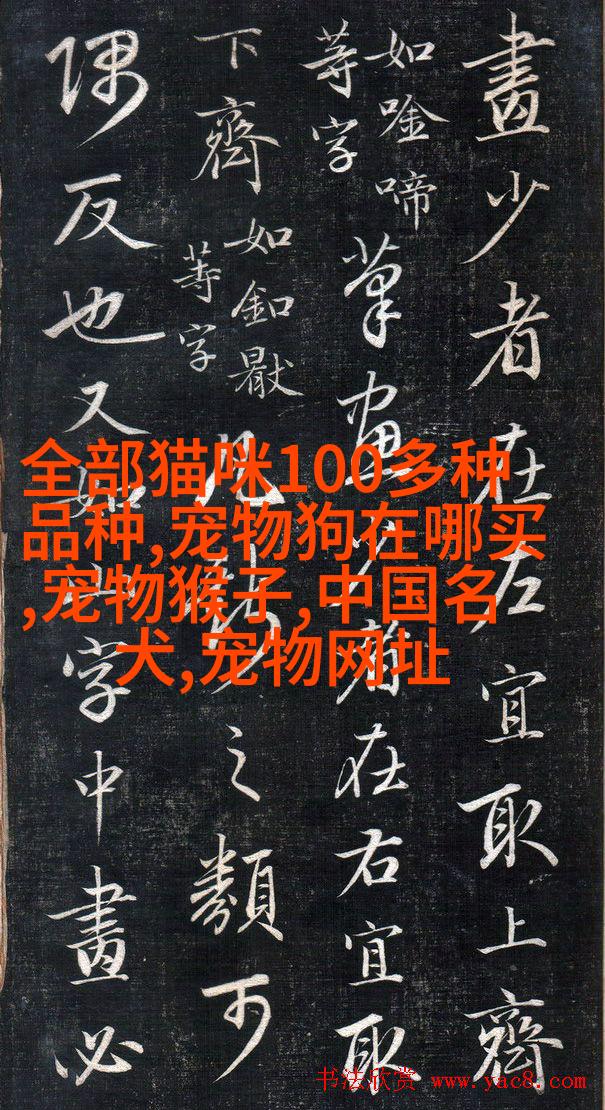 畫少者在左宜取上齊
如唫啼
等字
筆畫少者在右宜取
下齊
如釦
等字
凡之類可
隅反也又如山字中畫必
全部猫咪100多种
品种,宠物狗在哪买
,宠物猴子,中国名
犬,宠物网址
书法欣赏 www.yac8.com